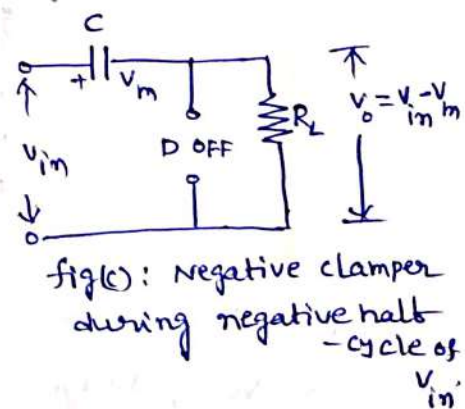 C
+
Vm
Vin
D OFF
RL
Vo = Vin - Vm
fig(c): Negative clamper
during negative half
-cycle of
Vin.